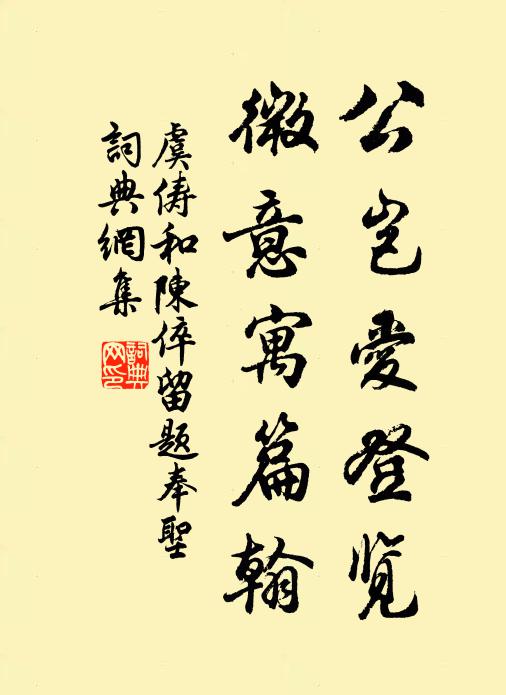 公岂爱登览
微意寓篇翰
虞俦和陈倅留题奉圣
词典网集
词典网印